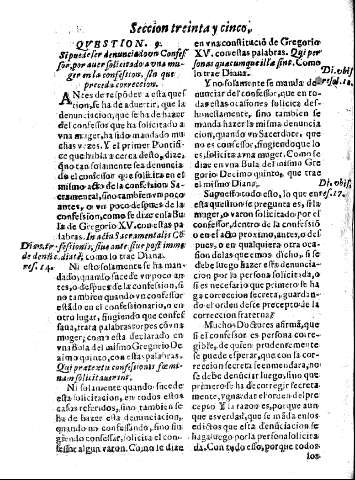 Seccion treinta y cinco,
QVESTION. 9.
Si puede ser denunciado vn Confes
sor, por auer solicitado a vna mu
ger en la confession, sin que
preceda correccion.
ANtes de respōder a esta ques
tion, se ha de aduertir, que la
denunciacion, que se ha de hazer
del confessor que ha solicitado a
vna muger, ha sido mandado mu-
chas vezes. Y el primer Pontifi-
ce que habla acerca desto, dize,
que no tan solamente sea denuncia
do el confessor que solicita en el
mismo acto de la confession Sa-
cramental, sino tambien vn poco
antes, o vn poco despues de la
confession, como se dize en la Bu
la de Gregorio XV. con estas pa
labras. In actu Sacramentalis Cō
fessionis, siue ante, siue post imme
diatè, como lo trae Diana.
Dian. tr.
de denūc.
res. 14.
Ni esto solamente se ha man-
dado, quando sucede vn poco an-
tes, o despues de la confession, si
no tambien quando vn confessor
estādo en el confessionario, o en
otro lugar, fingiendo que confes
saua, trata palabras torpes cō vna
muger, como esta declarado en
vna Bula del mismo Gregorio De
zimo quinto, con estas palabras.
Qui prætextu confessionis fœmi-
nam solicitauerint.
Ni solamente quando sucede
esta solicitacion, en todos estos
casos referidos, sino tambien se
ha de hazer esta denunciacion,
quando no confessando, sino fin
giendo confessar, solicita el con-
fessor algun varon. Como se dize
en vna constituciō de Gregorio
XV. con estas palabras. Qui per
sonas quacumque illæ sint. Como
lo trae Diana.
Di. vbi s
resol. 12.
Y no solamente se manda de-
nunciar del confessor, que en to-
das estas ocasiones solicita des-
honestamente, sino tambien se
manda hazer la misma denuncia
cion, quando vn Sacerdote, que
no es confessor, fingiendo que lo
es, solicita a vna muger. Como se
dize en vna Bula del mismo Gre
gorio Dezimo quinto, que trae
el mismo Diana.
Di. vbi s.
res. 17.
Supuesto todo esto, lo que en
esta question se pregunta es, si la
muger, o varon solicitado por el
confessor, dentro de la confessiō
o en el acto proximo, antes, o des
pues, o en qualquiera otra ocasi
on de las que emos dicho, si se
debe luego hazer esta denuncia-
cion por la persona solicitada, o
si es necesario que primero se ha
ga correccion secreta, guardan-
do el orden de el precepto de la
correccion fraterna?
Muchos Doctores afirmā, que
si el confessor es persona corre-
gible, de quien prudentemente
se puede esperar, que con la cor-
reccion secreta se enmendara, no
se debe denunciar luego, sino que
primero se ha de corregir secreta
mente, y guardar el orden del pre
cepto. Y la razon es, porque aun
que es verdad, que se māda en los
edictos que esta denunciacion se
haga luego por la persona solicita
da. Con todo esso, porque todos
los